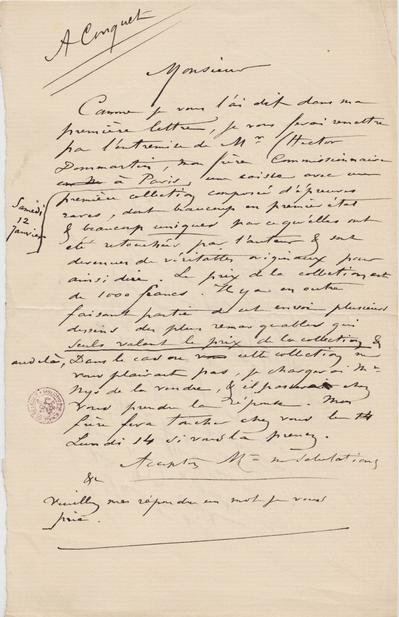 A Conquet
Monsieur
Comme je vous l'ai dit dans ma
première lettre, je vous ferai remettre
par l'entremise de Mr Hector
Dommartin, mon frère Commissionnaire
à Paris, une caisse avec une
première collection composé d'épreuves
rares, dont beaucoup en premier état
& beaucoup uniques parcequ'elles ont
été retouchées par l'auteur & sont
devenues de véritables originaux pour
ainsi dire. Le prix de la collection est
de 1000 francs. Il y a en outre
faisant partie de cet envoi plusieurs
dessins des plus remarquables qui
seuls valent le prix de la collection &
au delà, Dans le cas ou cette collection ne
vous plairait pas, je chargerai Mr
Nys de la vendre, & il passerait chez
vous prendre la réponse. Mon
frère fera toucher chez vous le 14
Lundi 14 si vous la prenez.
Acceptez Mr m Salutations
&
Veuillez me répondre un mot je vous
prie.
Samedi
12
Janvier